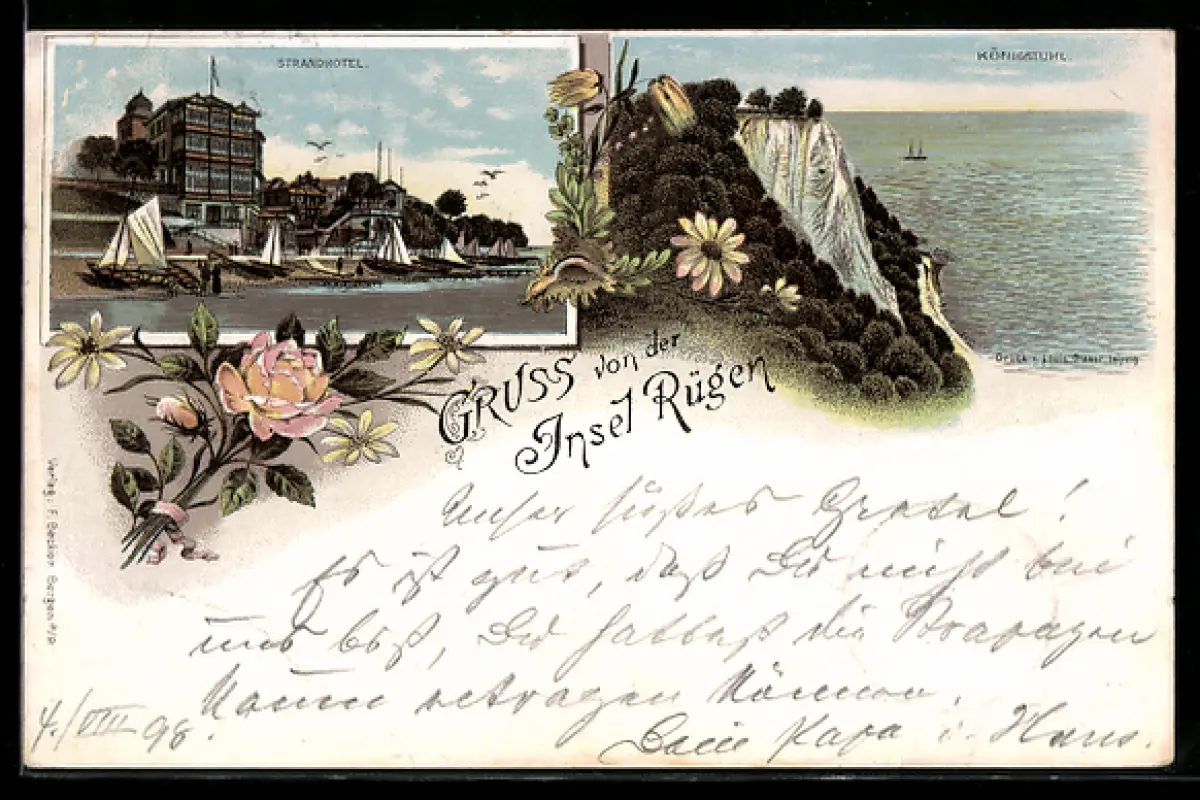 STRANDHOTEL.
KÖNIGSTUHL.
Druck v. Louis Glaser, Leipzig
GRUSS von der
Insel Rügen
Verlag: F. Becker Bergen a/R
Unser süßes Gretel!
Es ist gut, daß Du nicht bei
uns bist, Du hattest die Strapazen
kaum ertragen können.
4./VIII 98.
Papa u. Hans.